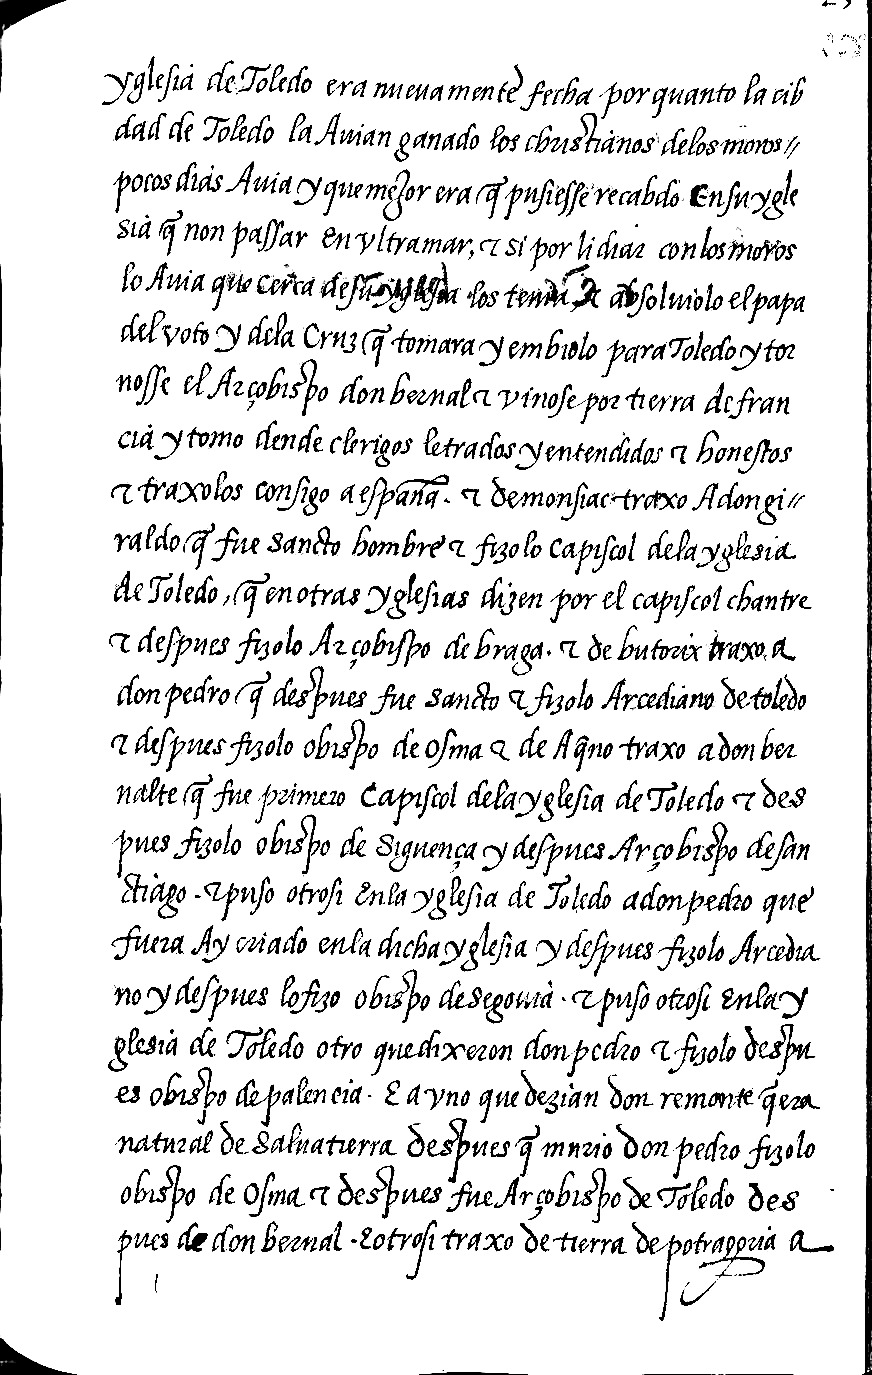 yglesia de Toledo era nuevamente fecha por quanto la cib
dad de Toledo la Avian ganado los christianos delos moros //
pocos dias Avia y que mejor era q̃ pusiesse recabdo En su ygle
sia q̃ non passar En vltramar, τ si por lidiar con los moros
lo Avia que cerca de su yglesia los tenia, τ absolviolo el papa
del voto y dela Cruz q̃ tomara y embiolo para Toledo y tor
nosse el Arçobispo don bernal τ vinose por tierra de fran
cia y tomo dende clerigos letrados y entendidos τ honestos
τ traxolos consigo a españa. τ demonsiac traxo A don gi //
raldo q̃ fue sancto hombre τ fizolo capiscol dela yglesia
de Toledo, q̃ en otras yglesias dizen por el capiscol chantre
τ despues fizolo Arçobispo de braga. τ de butorix traxo, a
don pedro q̃ despues fue sancto τ fizolo Arcediano de toledo
τ despues fizolo obispo de Osma τ de Aq̃no traxo a don ber
nalte q̃ fue primero Capiscol dela yglesia de Toledo τ des
pues fizolo obispo de Siguença y despues Arçobispo de san
ctiago. τ puso otrosi Enla yglesia de Toledo a don pedro que
fuera Ay criado enla dicha yglesia y despues fizolo Arcedia
no y despues lo fizo obispo de Segovia. τ puso otrosi Enla y
glesia de Toledo otro que dixeron don pedro τ fizolo despu
es obispo de palencia. E a vno que dezian don remonte q̃ era
natural de Salvatierra despues q̃ murio don pedro fizolo
obispo de Osma τ despues fue Arçobispo de Toledo des
pues de don bernal. E otrosi traxo de tierra de potragoria a